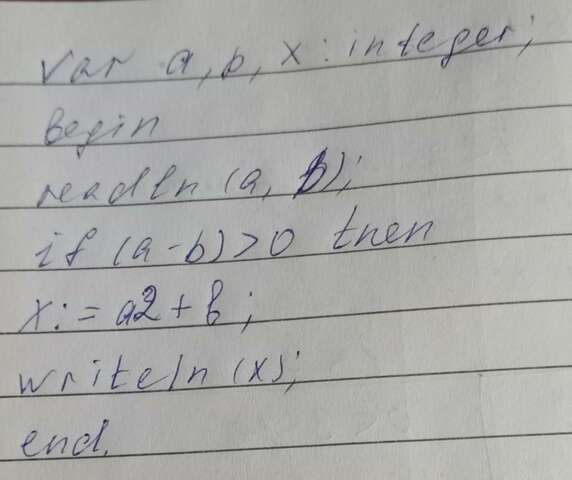 var a, b, x: integer;
begin
readln (a, b);
if (a-b)>0 then
x:=a2+b;
writeln (x);
end.